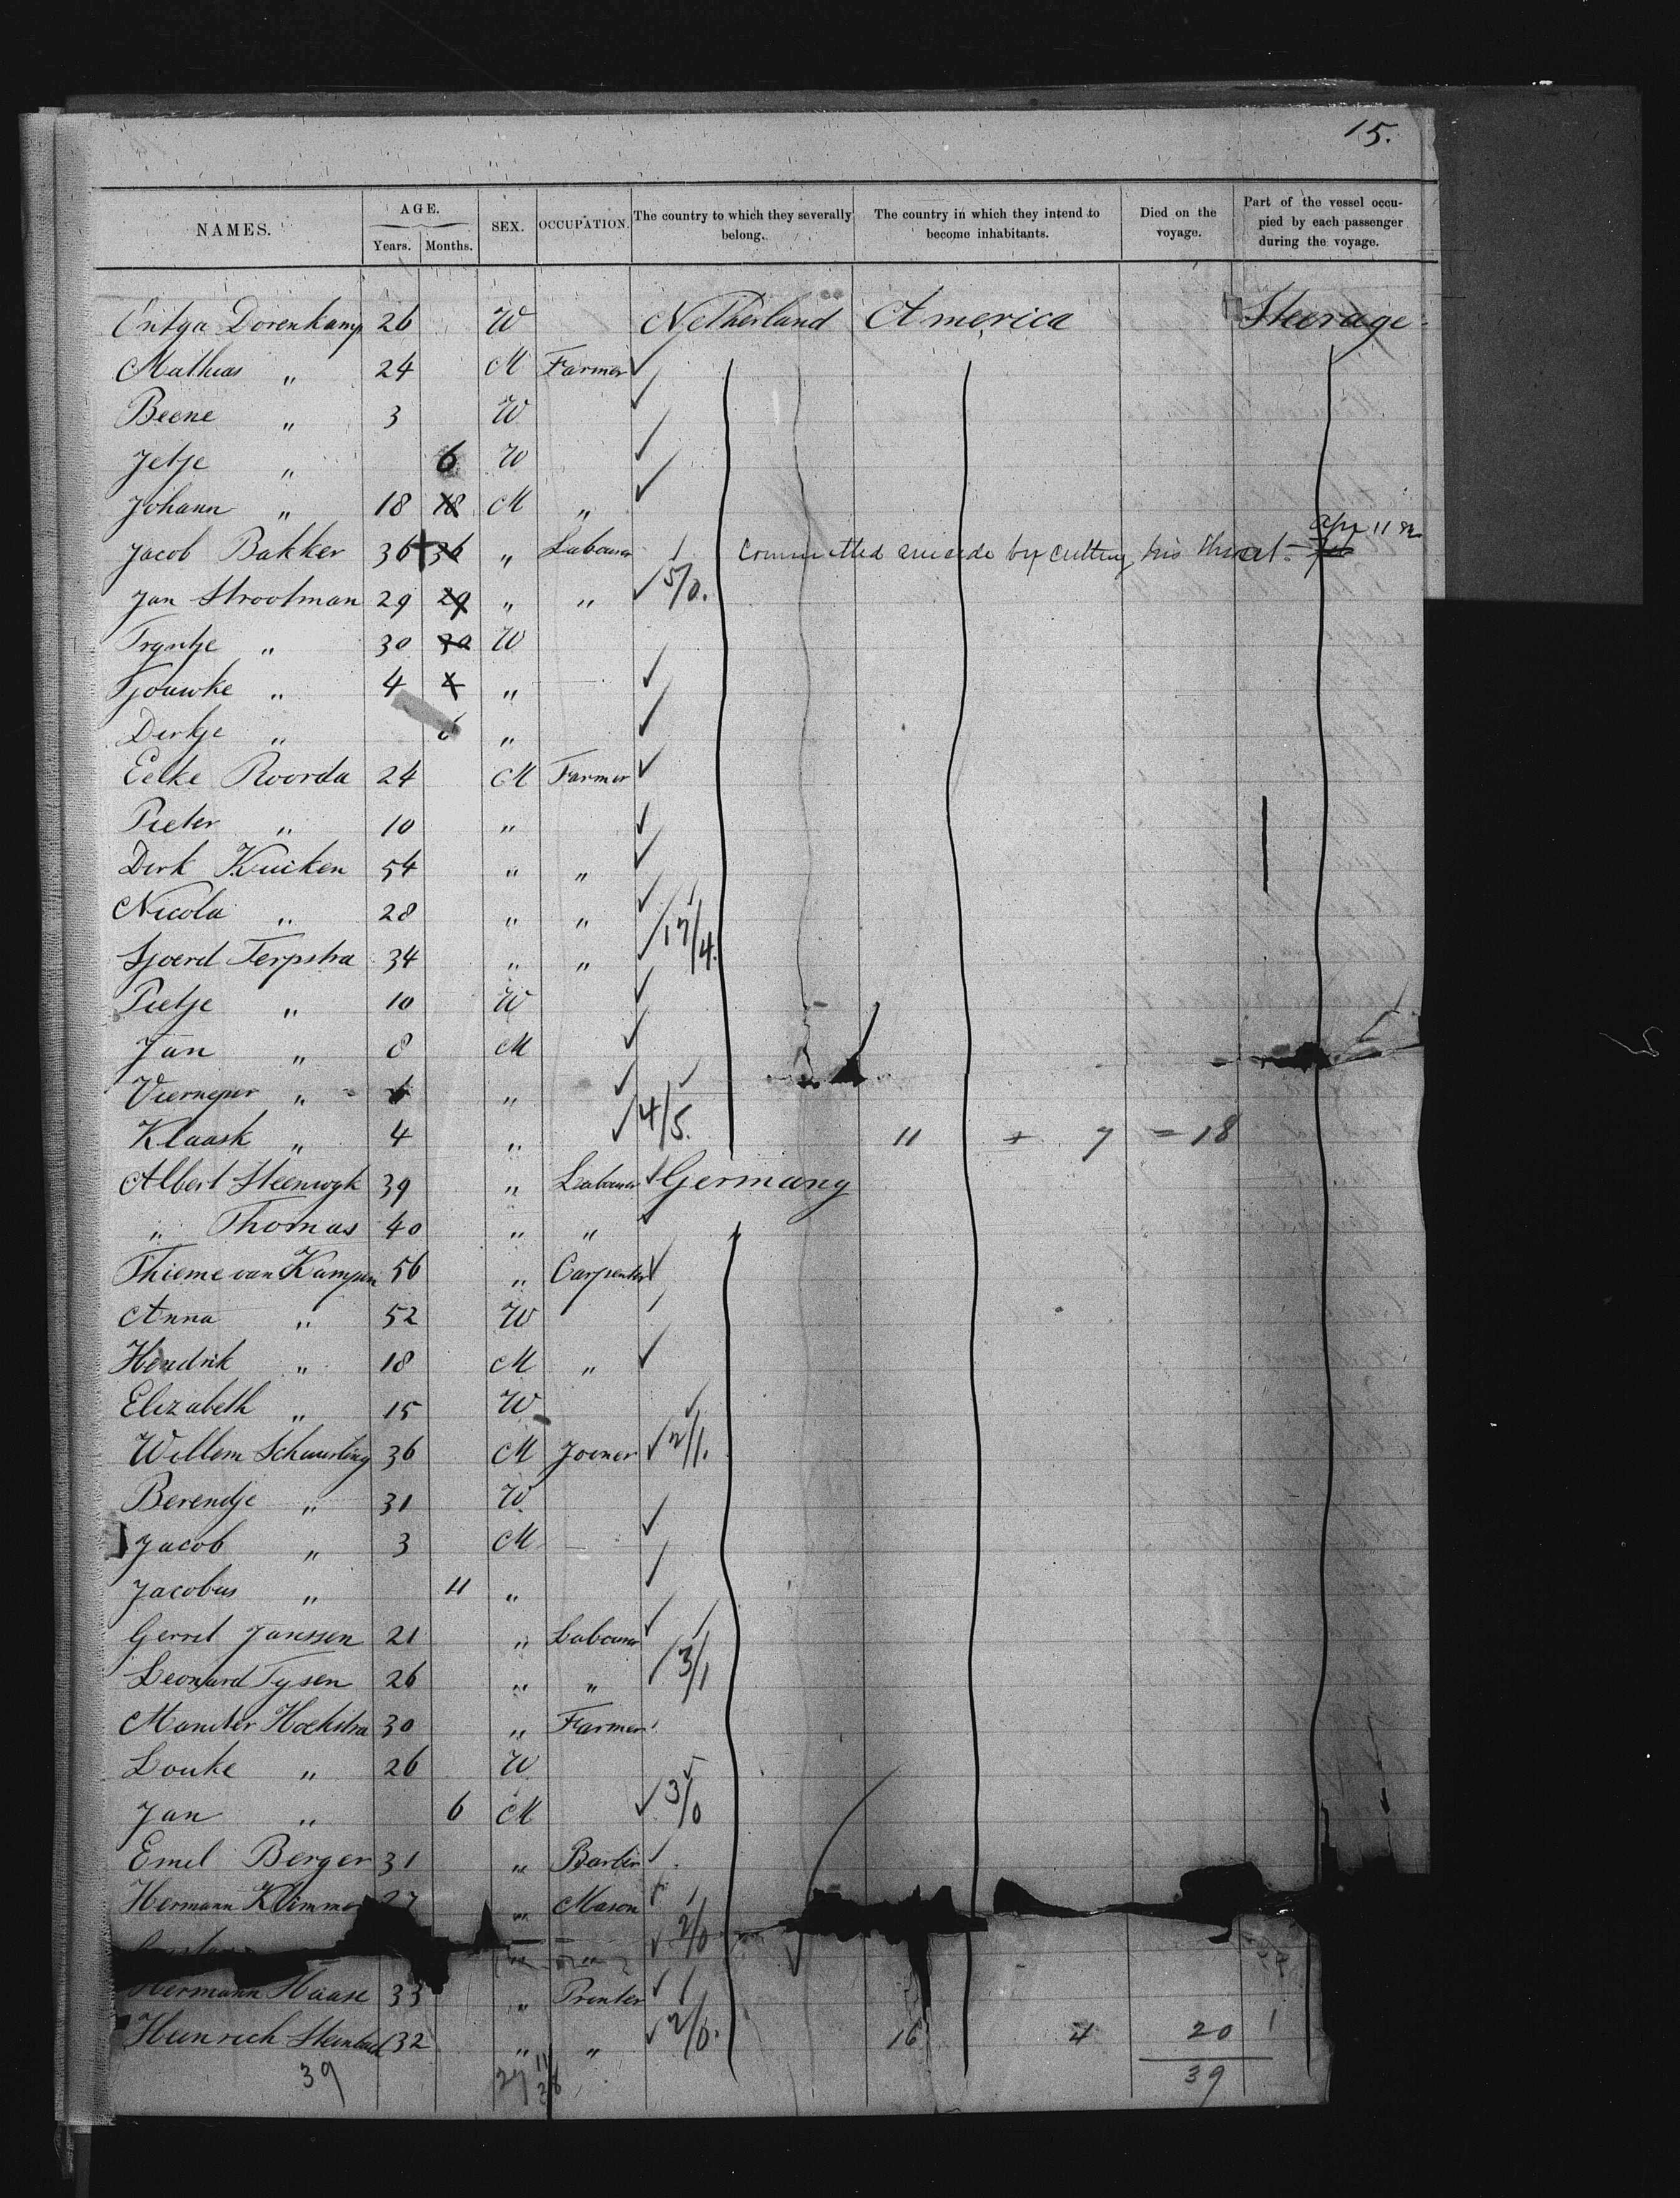 15.
NAMES. AGE. Years. Months. SEX. OCCUPATION. The country to which they severally belong. The country in which they intend to become inhabitants. Died on the voyage. Part of the vessel occupied by each passenger during the voyage.
Dorenkamp 26 W Netherland America Steerage
Mathias " 24 M Farmer
Beene " 3 W
Jetje " 6 W
Johann " 18 18 M "
Jacob Bakker 36 + 36 " Labourer 1 Committed suicide by cutting his throat - Apr 11
Jan Strootman 29 29 " " 5/0.
Tryntje " 30 30 W
Tjouwke " 4 4 "
Dirkje " 6 "
Eelke Roorda 24 M Farmer
Pieter " 10 "
Dirk Kuiken 54 " "
Nicola " 28 " "
Sjoerd Terpstra 34 " " 17/4.
Pietje " 10 W
Jan " 8 M
" 6 "
Klaask " 4 " 4/5. 11 + 7 = 18
Albert Steenwyk 39 " Labourer Germany
" Thomas 40 " " "
Thieme van Kampen 56 " Carpenter
Anna " 52 W
Hendrik " 18 M "
Elizabeth " 15 W
Willem Schuurling 36 M Joiner 2/1.
Berendje " 31 W
Jacob " 3 M
Jacobus " 11 "
Gerret Janssen 21 " Labourer
Leonard Tysen 26 " " 3/1
Hoekstra 30 " Farmer
Louke " 26 W
Jan " 6 M 3/0
Emil Berger 31 " Barber
Hermann 27 " Mason
" " 2/0
Hermann Haase 33 " Printer
Heinrich Steinbach 32 " " 2/0. 16 4 20 1
39 39